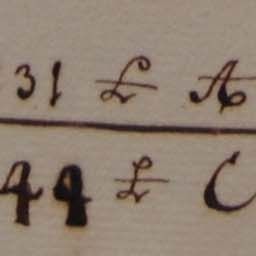 31 £ A
44 £ C